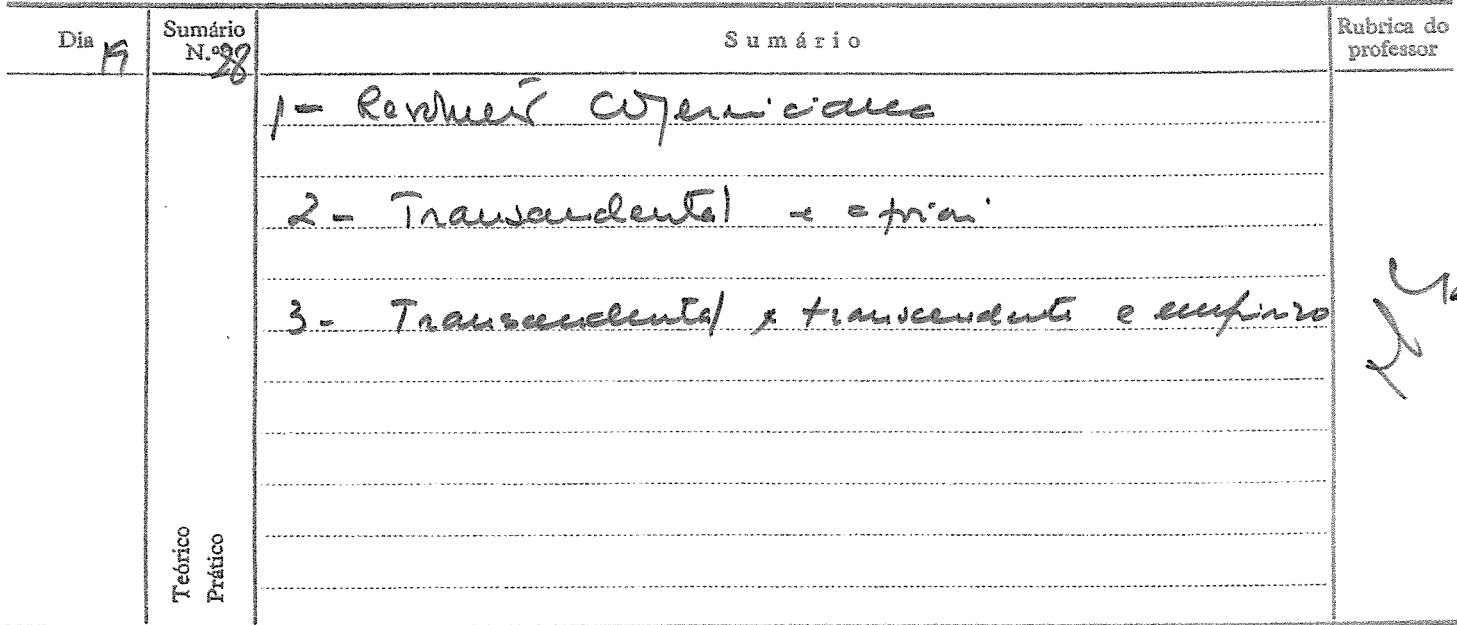 Dia 19
Sumário N.º 28
Sumário
Rubrica do professor
1- Revolução Coperniciana
2- Transcendental e a priori
3- Transcendental, transcendente e empírico
Teórico
Prático